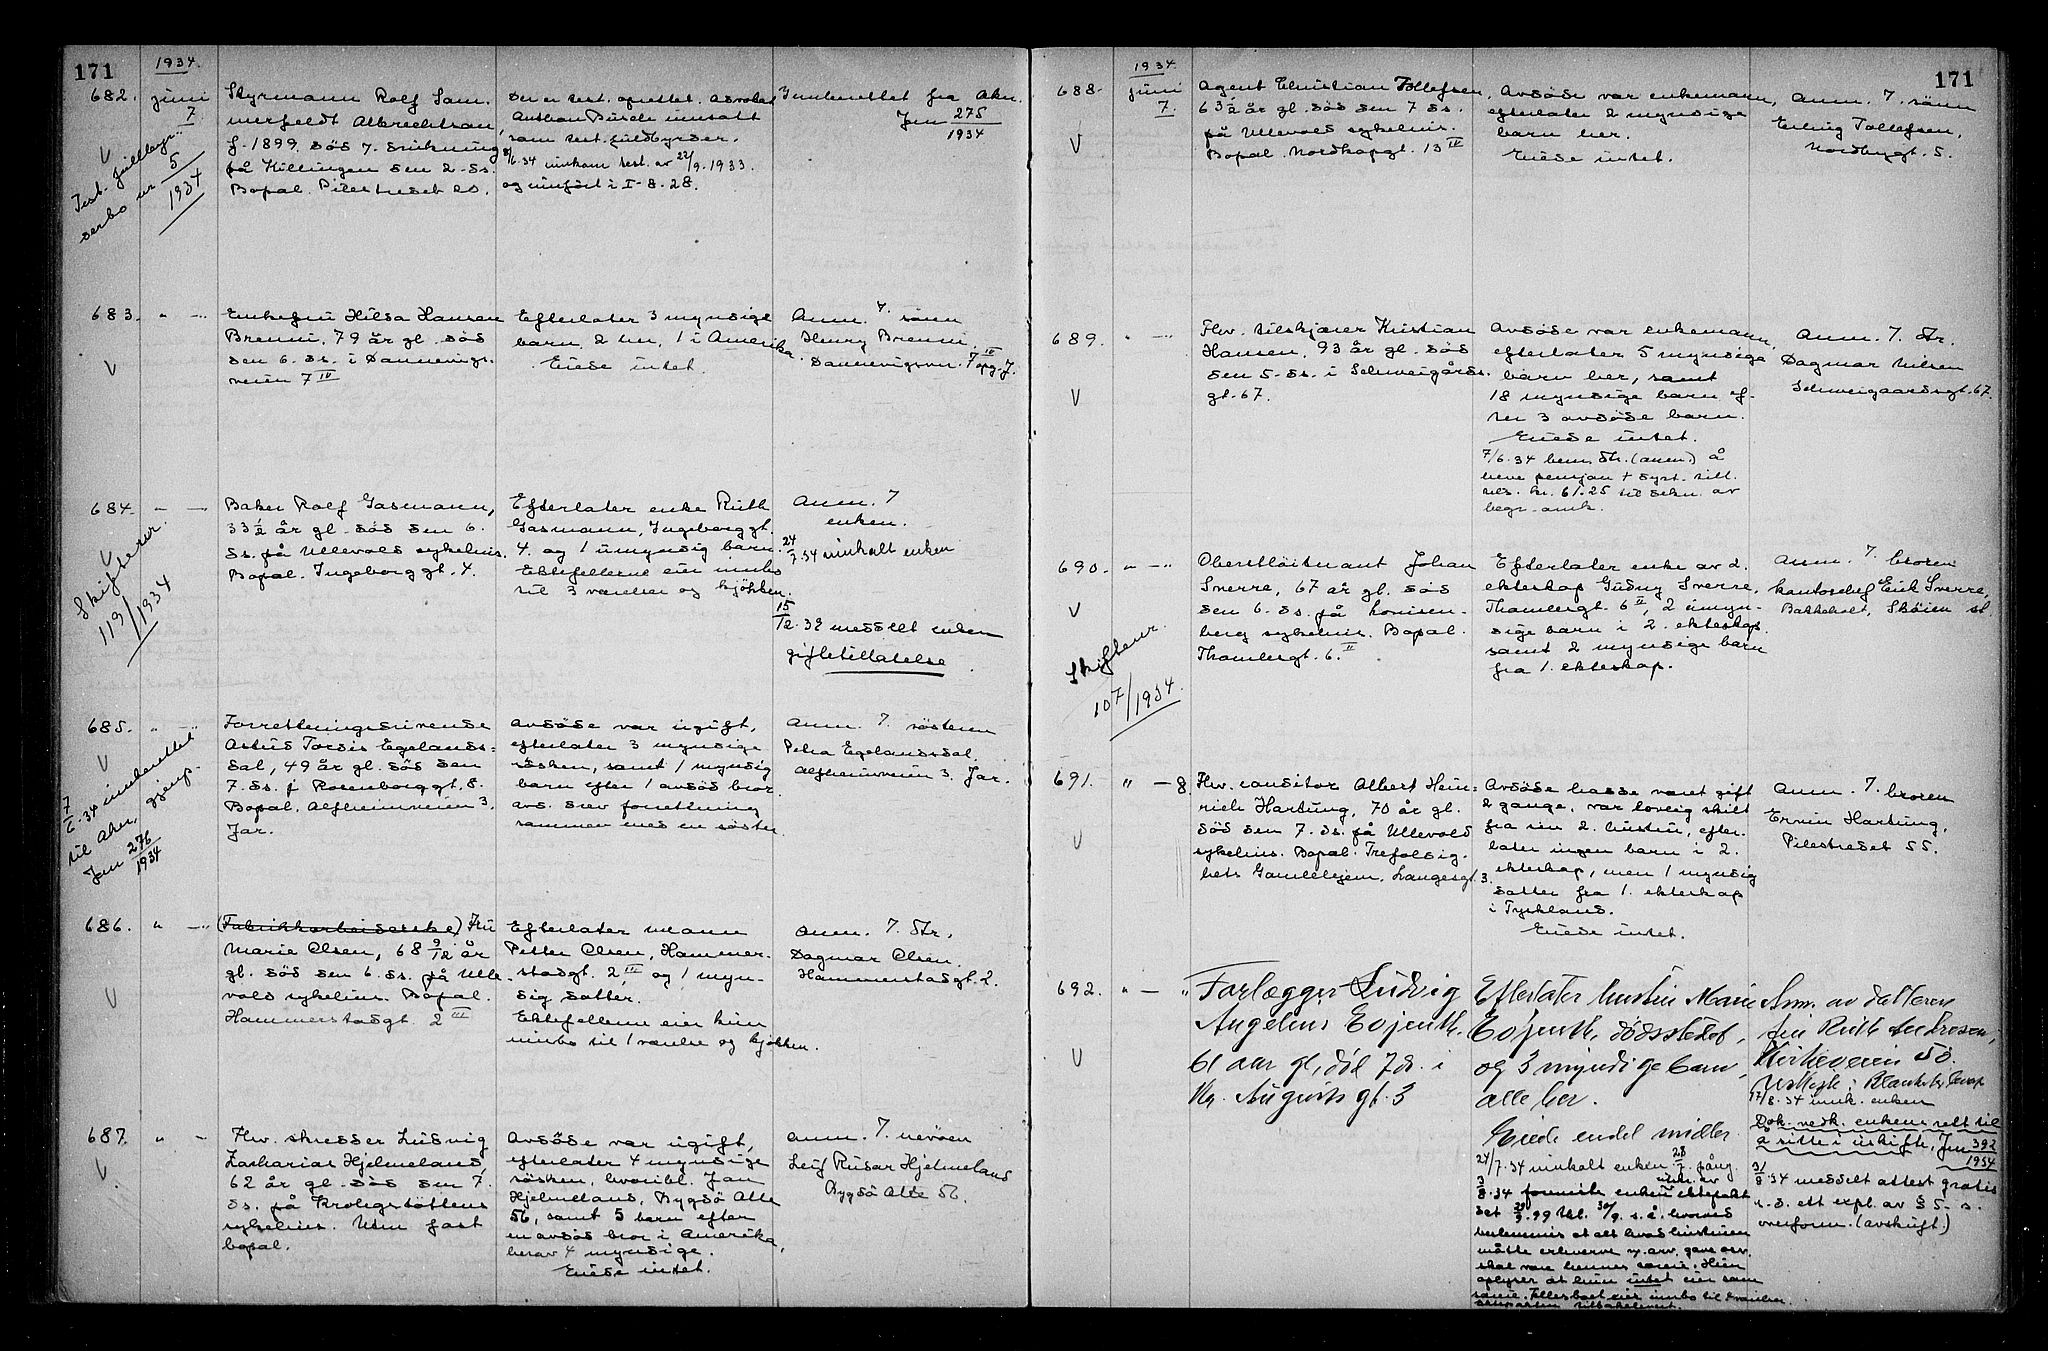 171
1934.
682. juni 7
Styrmann Rolf Som-
merfeldt Albrechtson
f. 1899. død 7. drukning
på Killingen den 2. ds.
Bopæl. Pilestredet 20.
Der er test. oprettet. Advokat
Anthon Busch innsatt
som test. fuldbyrder.
8/6.34 innkom test. av 22/9.1933.
og innført i I-8-28.
Innberettet fra Aker.
Jnr 275/1934
V
Test. fuldbyr-
derbo nr 5/1934
683. " - "
Enkefru Hilda Hansen
Brenni, 79 år gl. død
den 6. ds. i Dannevigs-
veien 7 IV
Efterlater 3 myndige
barn, 2 her, 1 i Amerika.
Eiede intet.
Anm. 7. sønn
Henry Brenni,
Dannevigsvn. 7 IV opg. J.
V
684. " - "
Baker Rolf Gasmann,
33 1/2 år gl. død den 6.
ds. på Ullevold sykehus.
Bopæl. Ingeborggt. 4.
Efterlater enke Ruth
Gasmann, Ingeborggt.
4. og 1 umyndig barn.
Ektefellerne eier innbo
til 3 værelser og kjøkken.
Anm. 7
enken.
24/7.34 innkalt enken
15/12.39 meddelt enken
giftetillatelse
V
Skifteser.
119/1934
685. " - "
Forretningsdrivende
Astus Tordis Egelands-
dal, 49 år gl. død den
7. ds. f Rosenborggt. 8.
Bopæl. Alfheimveien 3.
Jar.
Avdøde var ugift,
efterlater 3 myndige
søsken, samt 1 myndig
barn efter 1 avdød bror
avd. drev forretning
sammen med en søster.
Anm. 7. søsteren
Petra Egelandsdal,
Alfheimveien 3. Jar.
V
7/6.34 innberettet
til Aker, gjenp.
Jnr 276/1934
686. " - "
(Fabrikkarbeiderske) Fru
Marie Olsen, 68 9/12 år
gl. død den 6. ds. på Ulle-
vold sykehus. Bopæl.
Hammerstadgt. 2 III
Efterlater mann
Petter Olsen, Hammer-
stadgt. 2 III, og 1 myn-
dig datter.
Ektefellerne eier kun
innbo til 1 værelse og kjøkken.
Anm. 7. dtr.
Dagmar Olsen.
Hammerstadgt. 2.
V
687. " -
Fhv. skredder Ludvig
Zacharias Hjelmeland,
62 år gl. død den 7.
ds. på Krohgstøttens
sykehus. Uten fast
bopæl.
Avdøde var ugift,
efterlater 4 myndige
søsken, hvoribl. Jan
Hjelmeland, Bygdø Alle
56, samt 5 barn efter
en avdød bror i Amerika,
herav 4 myndige.
Eiede intet.
Anm. 7. nevøen
Leif Rusar Hjelmeland
Bygdö Alle 56.
V
1934.
171
688. juni 7.
Agent Christian Tollefsen
63 1/2 år gl. død den 7 ds.
på Ullevold sykehus.
Bopæl. Nordkapgt. 13 IV
Avdøde var enkemann,
efterlater 2 myndige
barn her.
Eiede intet.
Anm. 7. sønn
Erling Tollefsen,
Nordbygt. 5.
V
689. " - "
Fhv. tilskjærer Kristian
Hansen, 93 år gl. død
den 5. ds. i Schweigårds-
gt. 67.
Avdøde var enkemann,
efterlater 5 myndige
barn her, samt
18 myndige barn ef-
ter 3 avdøde barn.
Eiede intet.
7/6.34 bem. dtr. (anm.) å
heve pensjon + dyrt. till.
tils. kr. 61.25 til dekn. av
begr. omk.
Anm. 7. dtr.
Dagmar Nilsen
Schweigaardsgt. 67.
V
690. " - "
Oberstløitnant Johan
Sverre, 67 år gl. død
den 6. ds. på Lovisen-
berg sykehus. Bopæl.
Thomlesgt. 6. II
Efterlater enke av 2.
ekteskap Gudny Sverre,
Thomlesgt. 6 II, 2 umyn-
dige barn i 2. ekteskap
samt 2 myndige barn
fra 1. ekteskap.
Anm. 7. broren
kontorchef Erik Sverre,
Bakkeholt, Skøien st.
V
Skifteser.
107/1934.
691. " - 8
Fhv. conditor Albert Hein-
rich Hartung, 70 år gl.
død den 7. ds. på Ullevold
sykehus. Bopæl. Trefoldig-
hets Gamlehjem, Langesgt. 3.
Avdøde hadde været gift
2 gange, var lovlig skilt
fra sin 2. hustru, efter-
later ingen barn i 2.
ekteskap, men 1 myndig
datter fra 1. ekteskap
i Tyskland.
Eiede intet.
Anm. 7. broren
Erwin Hartung,
Pilestredet 55.
V
692. " - "
Forlægger Ludvig
Angelius Evjenth,
61 aar gl, død 7 ds. i
Kg. Augusts gt. 3
Efterlater hustru Marie
Evjenth, dødsstedet,
og 3 myndige barn,
alle her.
Eiede endel midler.
24/7.34 innkalt enken 28/7.
3/8.34 foreviste enken ektepakt
hustruen
måtte erhverve v. arv, gave osv.
skal være hennes særeie. Hun
oplyser at hun intet eier som
særeie. Fellesboet eier innbo til
Anm. av datteren
fru Ruth Andresen,
Kirkeveien 50.
Uskifte: Blankett
17/8.34 innk. enken
Dok. vedk. enkens rett til
å sitte i uskifte, Jnr 392/1934
31/8.34 meddelt attest gratis
overform. (avskrift)
V